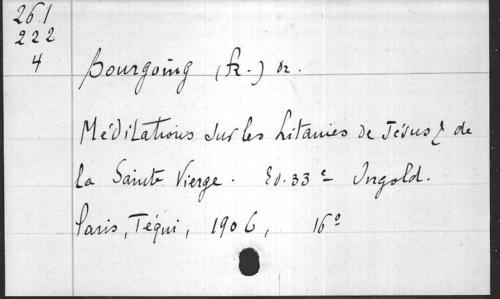 261
222
4
Bourgoing (fr.) or.
Méditations sur les Litanies de Jésus & de
la Sainte Vierge. Ed. 33e Ingold.
Paris, Téqui, 1906, 16º